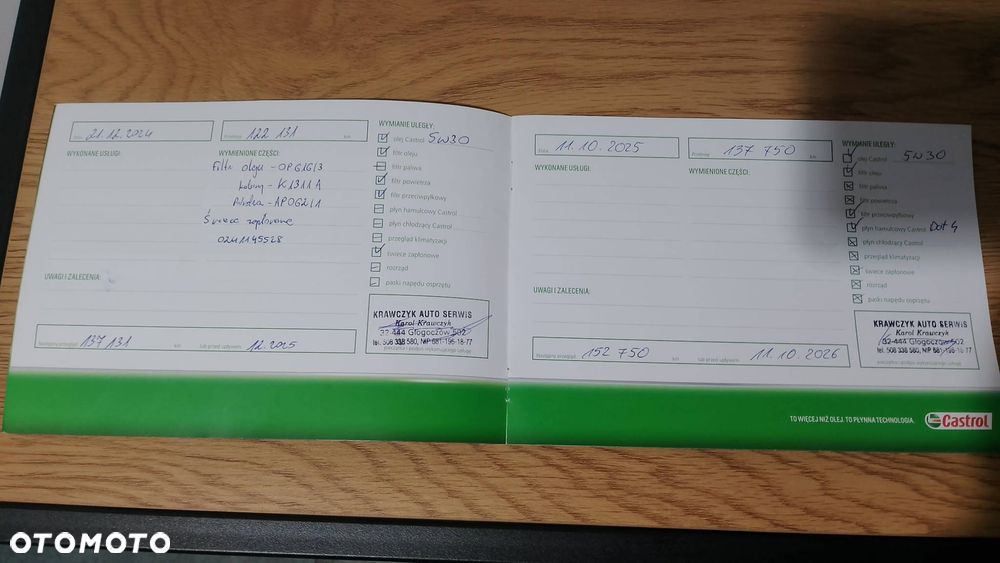 Data 21.12.2024
Przebieg 122 131 km
WYKONANE USŁUGI:
WYMIENIONE CZĘŚCI:
Filtr oleju - OP616/3
kabiny - K1311A
Świece zapłonowe
0241145528
UWAGI I ZALECENIA:
WYMIANIE ULEGŁY:
olej Castrol 5W30
filtr oleju
filtr paliwa
filtr powietrza
filtr przeciwpyłkowy
płyn hamulcowy Castrol
płyn chłodzący Castrol
przegląd klimatyzacji
świece zapłonowe
rozrząd
paski napędu osprzętu
Następny przegląd 137 131 km lub przed upływem 12.2025
KRAWCZYK AUTO SERWIS
Karol Krawczyk
32-444 Głogoczów 502
tel. 506 338 580, NIP 681-195-18-77
pieczątka i podpis wykonującego usługę
Data 11.10.2025
Przebieg 137 750 km
WYKONANE USŁUGI:
WYMIENIONE CZĘŚCI:
UWAGI I ZALECENIA:
WYMIANIE ULEGŁY:
olej Castrol 5W30
filtr oleju
filtr paliwa
filtr powietrza
filtr przeciwpyłkowy
płyn hamulcowy Castrol Dot 4
płyn chłodzący Castrol
przegląd klimatyzacji
świece zapłonowe
rozrząd
paski napędu osprzętu
Następny przegląd 152 750 km lub przed upływem 11.10.2026
KRAWCZYK AUTO SERWIS
Karol Krawczyk
32-444 Głogoczów 502
tel. 506 338 580, NIP 681-195-18-77
pieczątka i podpis wykonującego usługę
TO WIĘCEJ NIŻ OLEJ. TO PŁYNNA TECHNOLOGIA.
Castrol
OTOMOTO